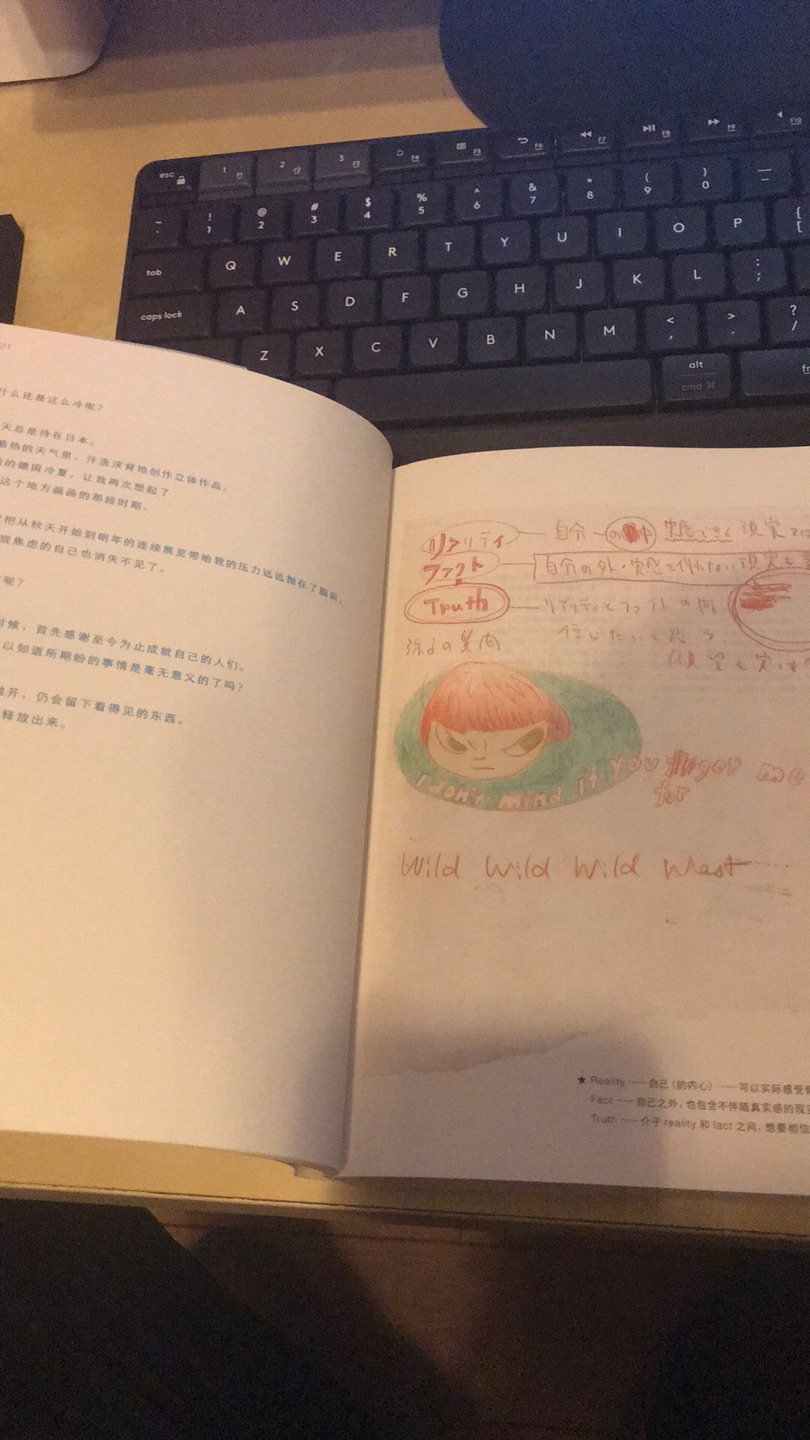 esc
1 F1
2 F2
3 F3
F4
F5
F6
F7
F8
F9
F10
~ `
! 1
@ 2
# 3
$ 4
% 5
^ 6
& 7
* 8
( 9
) 0
tab
Q W E R T Y U I O P { [
caps lock
A S D F G H J K L : ;
Z X C V B N M < , > . ? /
alt
cmd ⌘
21
什么还是这么冷呢?
天总是待在日本。
热的天气里，汗流浃背地创作立体作品。
的德国冷夏，让我再次想起了
这个地方画画的那段时期。
把从秋天开始到明年的连续展览带给我的压力远远抛在了脑后，
焦虑的自己也消失不见了。
呢?
时候，首先感谢至今为止成就自己的人们。
以知道所期盼的事情是毫无意义的了吗?
开，仍会留下看得见的东西。
释放出来。
リアリティ — 自分の 実感できる 現実
ファクト — 自分の外・実感を伴わない現実も
Truth — リアリティとファクトの間
信じたいと思う
I don't mind if you me
for
Wild Wild Wild West
★ Reality —— 自己 (的内心) —— 可以实际感受
Fact —— 自己之外，也包含不伴随真实感的现
Truth —— 介于 reality 和 fact 之间，想要相信